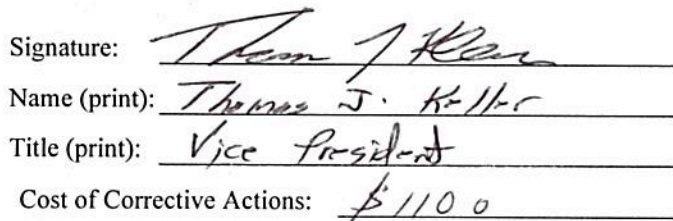 Signature: Thom J Kler
Name (print): Thomas J. Keller
Title (print): Vice President
Cost of Corrective Actions: $1100